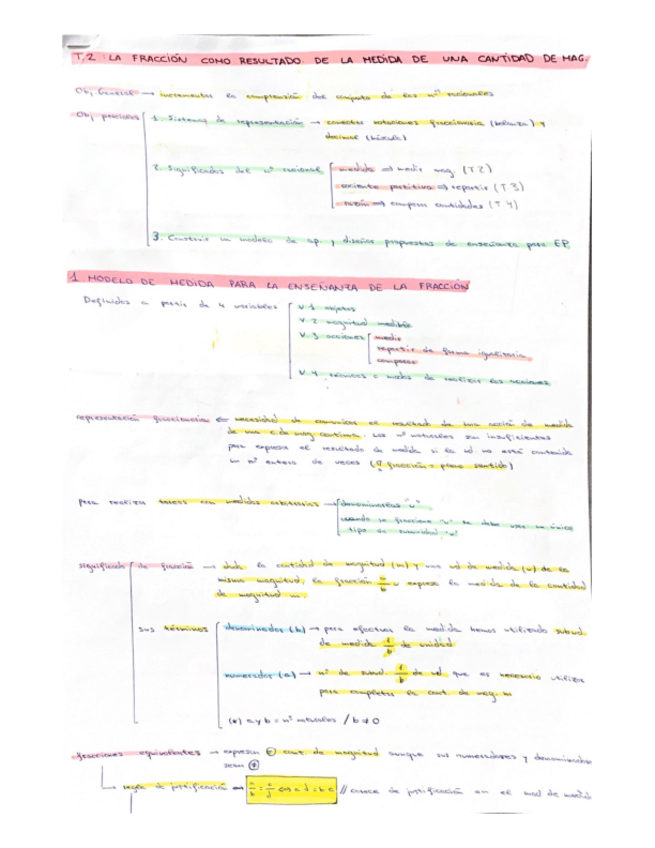 T.2 : LA FRACCIÓN COMO RESULTADO DE LA MEDIDA DE UNA CANTIDAD DE MAG.
Obj. General → incrementar la comprensión del conjunto de los nº racionales
Obj. precisos 1. Sistemas de representación → conectar notaciones fraccionaria (balanza) y
decimal (báscula)
2. Significados del nº racional medida ⇒ medir mag. (T2)
cociente partitivo ⇒ repartir (T3)
razón ⇒ comparar cantidades (T4)
3. Construir un modelo de ap. y diseñar propuestas de enseñanza para EP
1 MODELO DE MEDIDA PARA LA ENSEÑANZA DE LA FRACCIÓN
Definidos a partir de 4 variables V 1 objetos
V 2 magnitud medible
V 3 acciones medir
repartir de forma igualitaria
comparar
V 4 técnicas o modos de realizar las acciones
representación fraccionaria ← necesidad de comunicar el resultado de una acción de medida
de una c.de mag continua. Los nº naturales son insuficientes
para expresar el resultado de medida si la ud. no está contenida
un nº entero de veces ( fracción = pleno sentido)
para realizar tareas con medidas arbitrarias → "u"
cuando se fraccione "u" se debe usar un único
tipo de subunidad "u"
significado de fracción → dada la cantidad de magnitud (m) y una ud de medida (u) de la
misma magnitud, la fracción a/b u expresa la medida de la cantidad
de magnitud m.
sus términos denominador (b) → para efectuar la medida hemos utilizado subud.
de medida 1/b de unidad
numerador (a) → nº de subud. 1/b de ud que es necesario utilizar
para completar la cant. de mag. m
(*) a y b = nº naturales / b ≠ 0
fracciones equivalentes → expresan = cant de magnitud aunque sus numeradores y denominador
sean ≠
→ regla de justificación ⇔ a/b = c/d ⇔ a d = b c // carece de justificación en el mod de medida